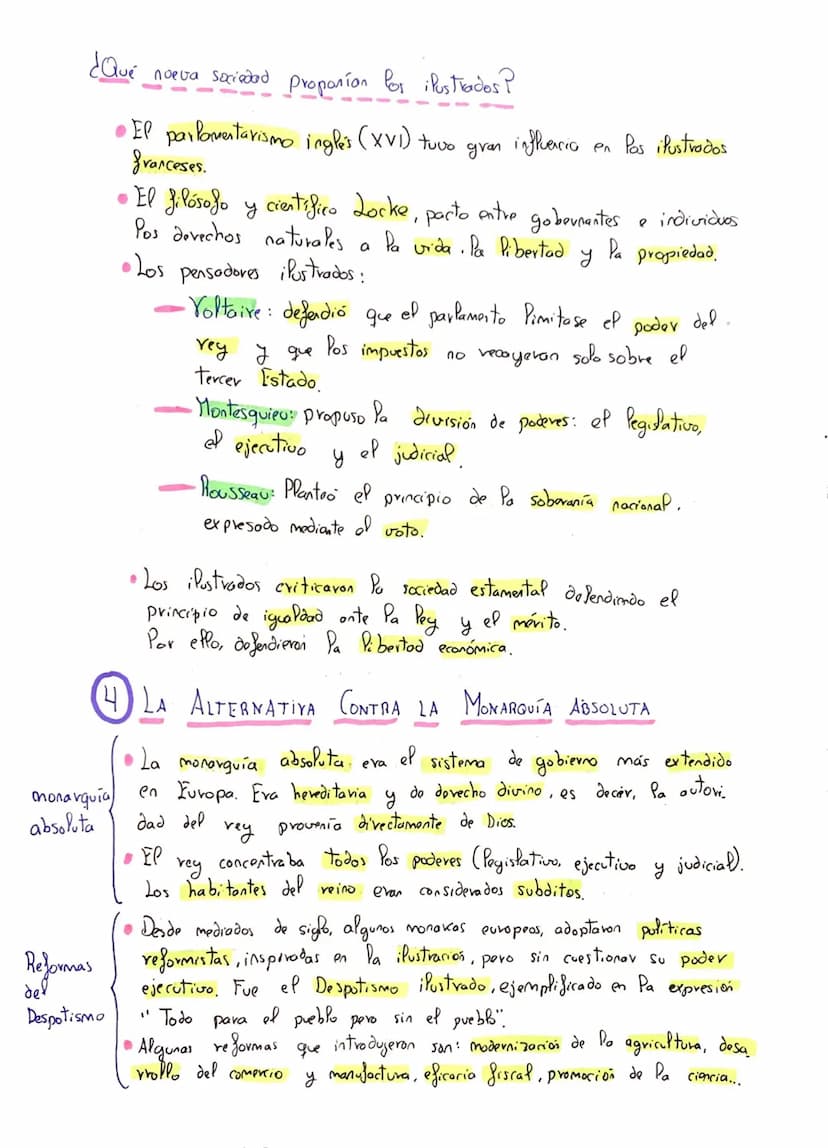 ¿Qué nueva sociedad proponían los ilustrados?
• El parlamentarismo inglés (XVI) tuvo gran influencia en los ilustrados
franceses.
• El filósofo y científico Locke, pacto entre gobernantes e individuos
los derechos naturales a la vida. la libertad y la propiedad.
• Los pensadores ilustrados:
— Voltaire: defendió que el parlamento limitase el poder del
rey y que los impuestos no recayeran solo sobre el
tercer Estado.
— Montesquieu: propuso la división de poderes: el legislativo,
el ejecutivo y el judicial.
— Rousseau: Planteó el principio de la soberanía nacional.
expresado mediante el voto.
• Los ilustrados criticaron la sociedad estamental defendiendo el
principio de igualdad ante la ley y el mérito.
Por ello, defendieron la libertad económica.
4 LA ALTERNATIVA CONTRA LA MONARQUÍA ABSOLUTA
monarquía
absoluta
• La monarquía absoluta. era el sistema de gobierno más extendido
en Europa. Era hereditaria y de derecho divino, es decir, la autori
dad del rey provenía directamente de Dios.
• El rey concentraba todos los poderes (legislativo, ejecutivo y judicial).
Los habitantes del reino eran considerados subditos.
Reformas
del
Despotismo
• Desde mediados de siglo, algunos monarcas europeos, adoptaron políticas
reformistas, inspiradas en la ilustración, pero sin cuestionar su poder
ejecutivo. Fue el Despotismo ilustrado, ejemplificado en la expresión
"Todo para el pueblo pero sin el pueblo".
• Algunas reformas que introdujeron son: modernización de la agricultura, desa
rrollo del comercio y manufactura, eficacia fiscal, promoción de la ciencia...